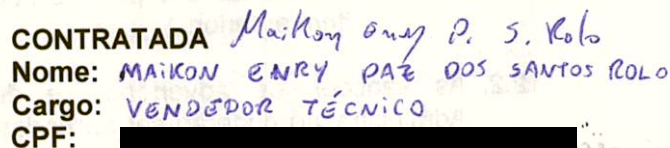 CONTRATADA Maikon Enry P. S. Rolo
Nome: MAIKON ENRY PAZ DOS SANTOS ROLO
Cargo: VENDEDOR TÉCNICO
CPF: